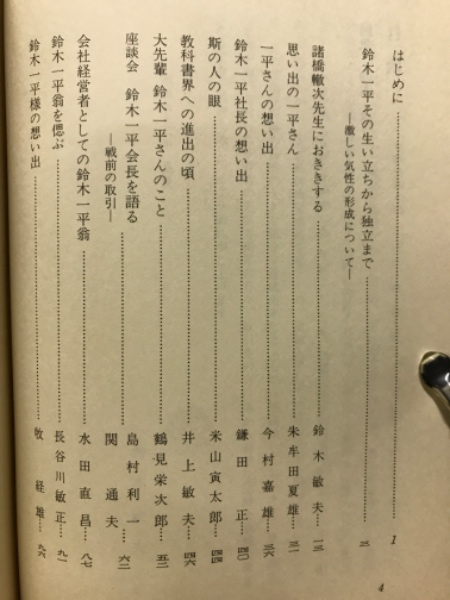 はじめに……1
鈴木一平その生い立ちから独立まで……三
―激しい気性の形成について―
諸橋轍次先生におききする……鈴木敏夫…一三
思い出の一平さん……朱牟田夏雄…三一
一平さんの想い出……今村嘉雄…三六
鈴木一平社長の想い出……鎌田正…四〇
斯の人の眼……米山寅太郎…四四
教科書界への進出の頃……井上敏夫…四六
大先輩 鈴木一平さんのこと……鶴見栄次郎…五二
座談会 鈴木一平会長を語る……島村利一…六二
―戦前の取引― 関通夫
会社経営者としての鈴木一平翁……水田直昌…八七
鈴木一平翁を偲ぶ……長谷川敏正…九一
鈴木一平様の想い出……牧経雄…九六
4